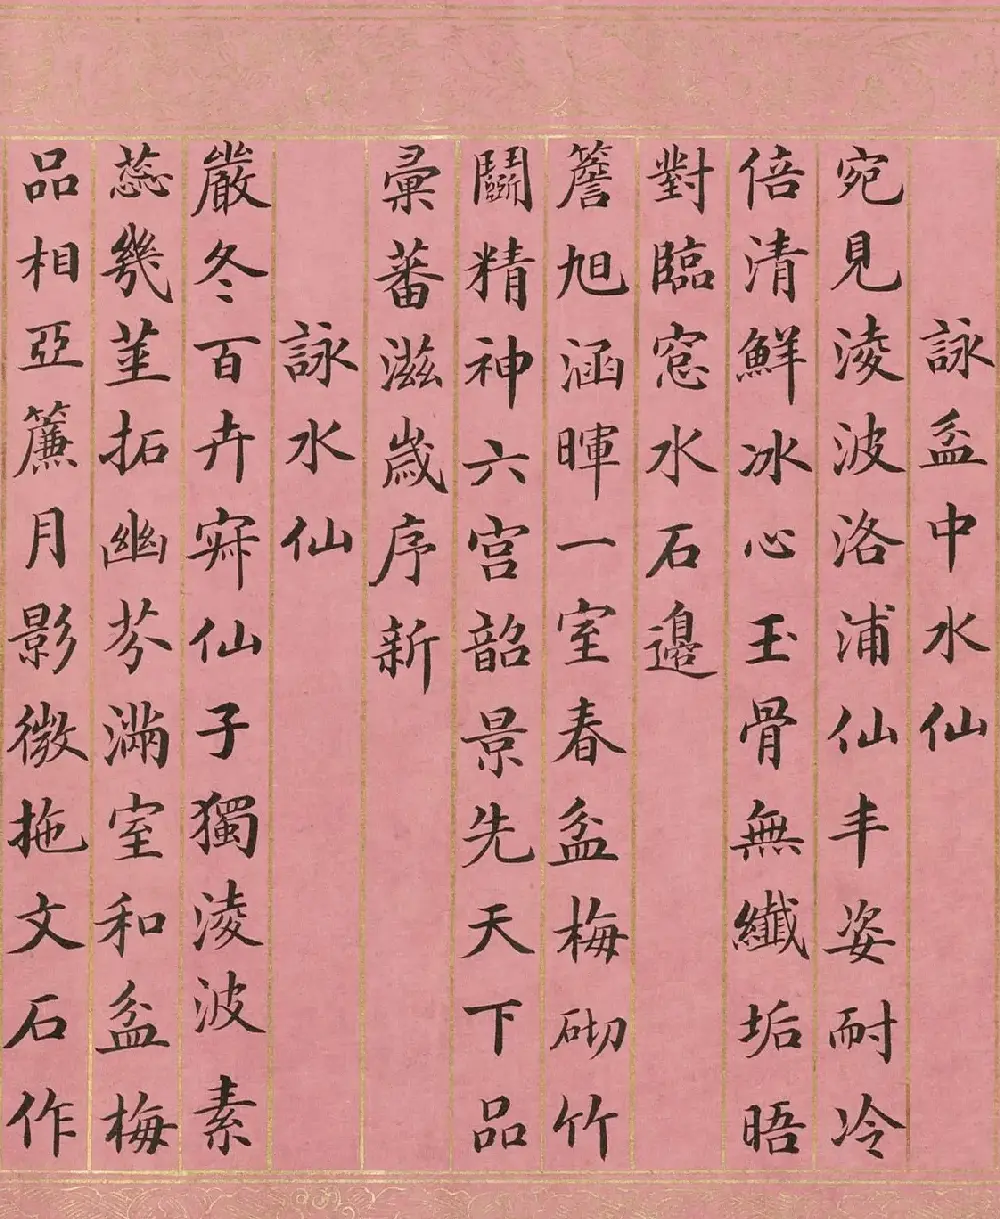 詠盆中水仙
宛見淩波洛浦仙丰姿耐冷
倍清鮮冰心玉骨無纖垢晤
對臨窓水石邊
簷旭涵暉一室春盆梅砌竹
鬭精神六宮韶景先天下品
彙蕃滋歲序新
詠水仙
嚴冬百卉寂仙子獨淩波素
蕊幾莖拓幽芬滿室和盆梅
品相亞簾月影微拖文石作